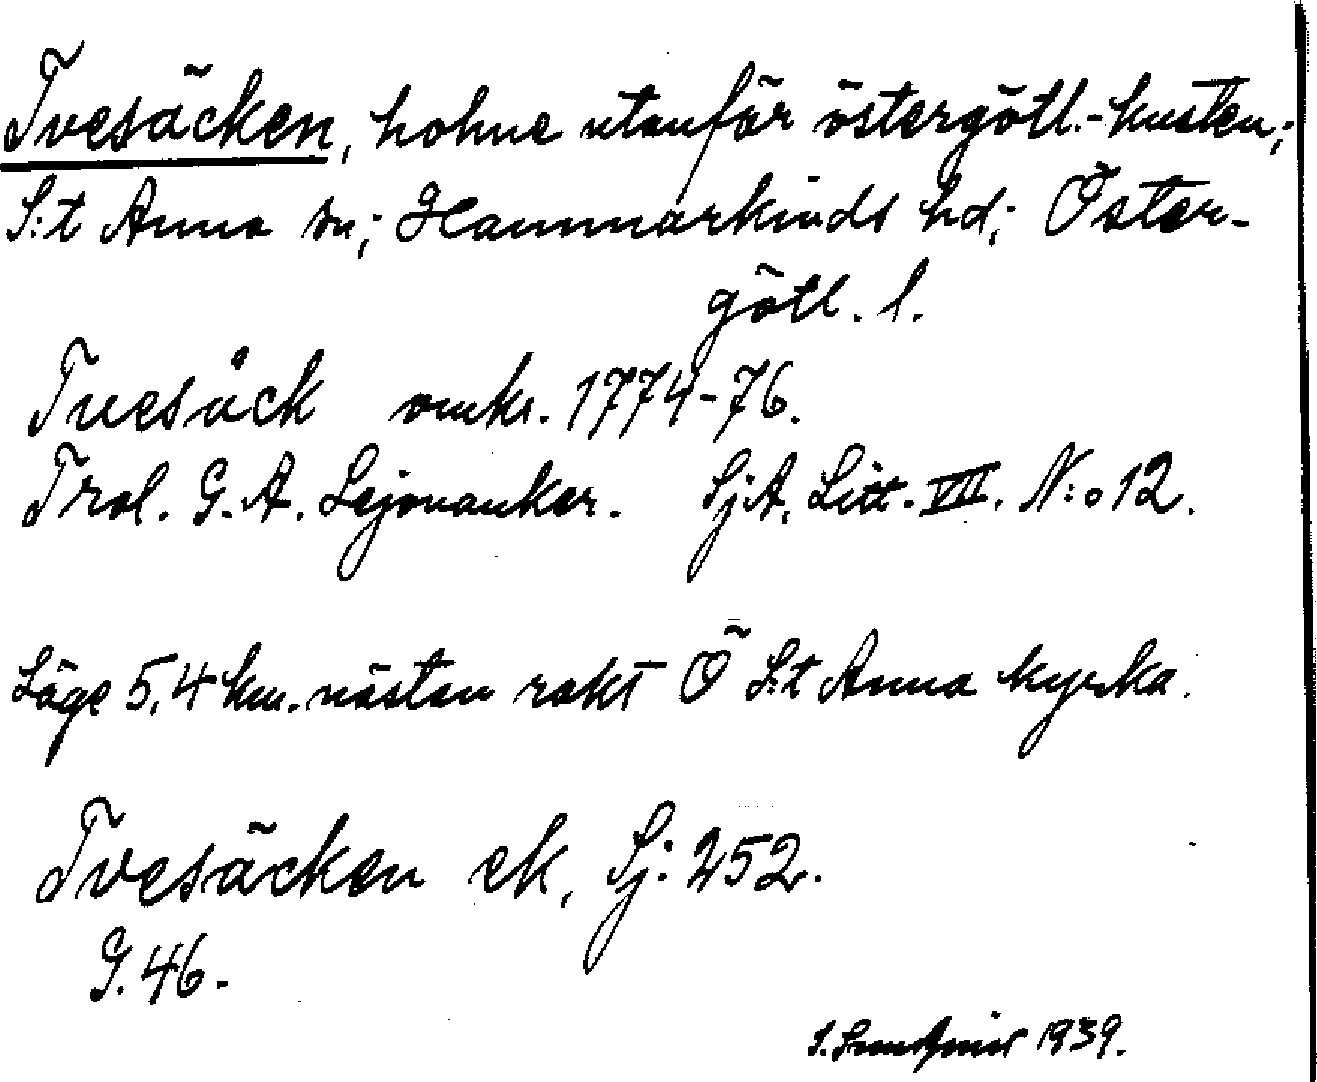 Tvesäcken, holme utanför östergötl.-kusten;
S:t Anna sn; Hammarkinds hd; Öster-
götl. l.
Tvesäck omkr. 1774-76.
Trol. G. A. Lejonanker. SjA. Litt. VII. N:o 12.
Läge 5,4 km. nästan rakt Ö S:t Anna kyrka.
Tvesäcken ek, Sj: 252.
G. 46.
S. 1939.